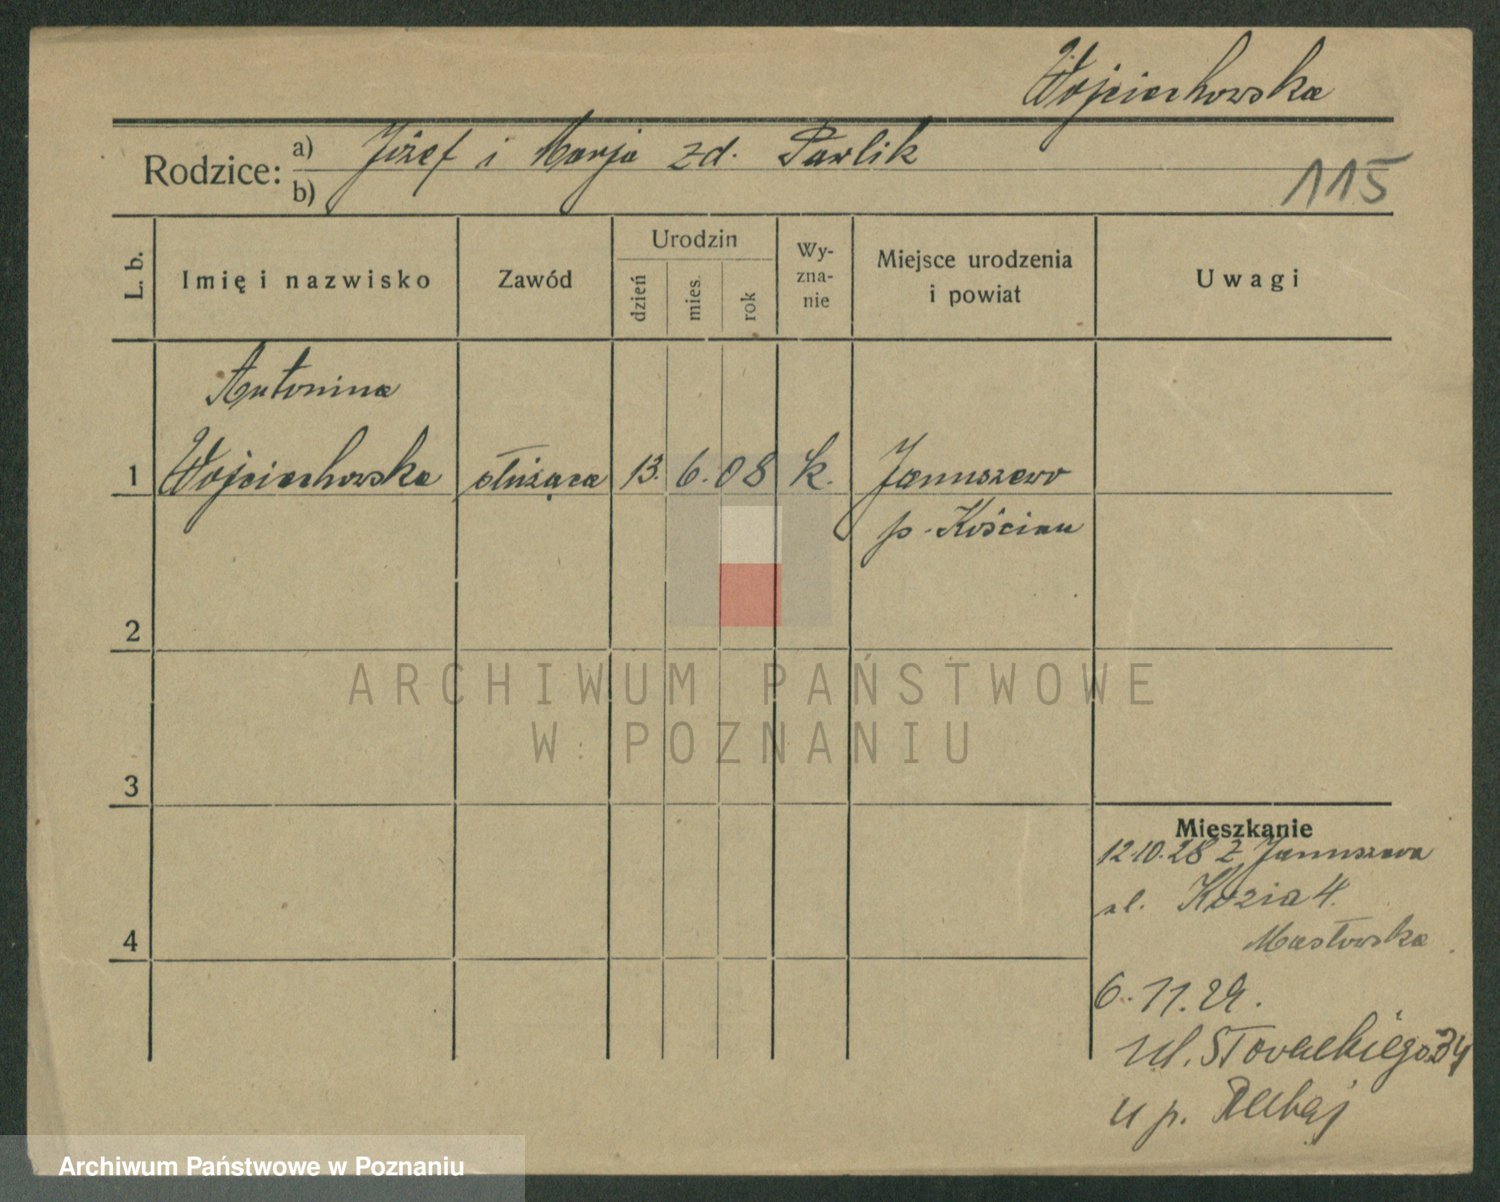 Wojciechowska
Rodzice: a) Józef i Marja zd. Pawlik
b)
115
L. b.
Imię i nazwisko
Zawód
Urodzin
dzień
mies.
rok
Wy-
zna-
nie
Miejsce urodzenia
i powiat
Uwagi
Antonina
1 Wojciechowska służąca 13. 6. 08 k. Januszewo
p. Kościan
2
3
4
Mieszkanie
12.10.28 z Januszewa
ul. Kozia 4.
Masłowska
6.11.29.
ul. Słowackiego 34
u p.
ARCHIWUM PAŃSTWOWE
W POZNANIU
Archiwum Państwowe w Poznaniu